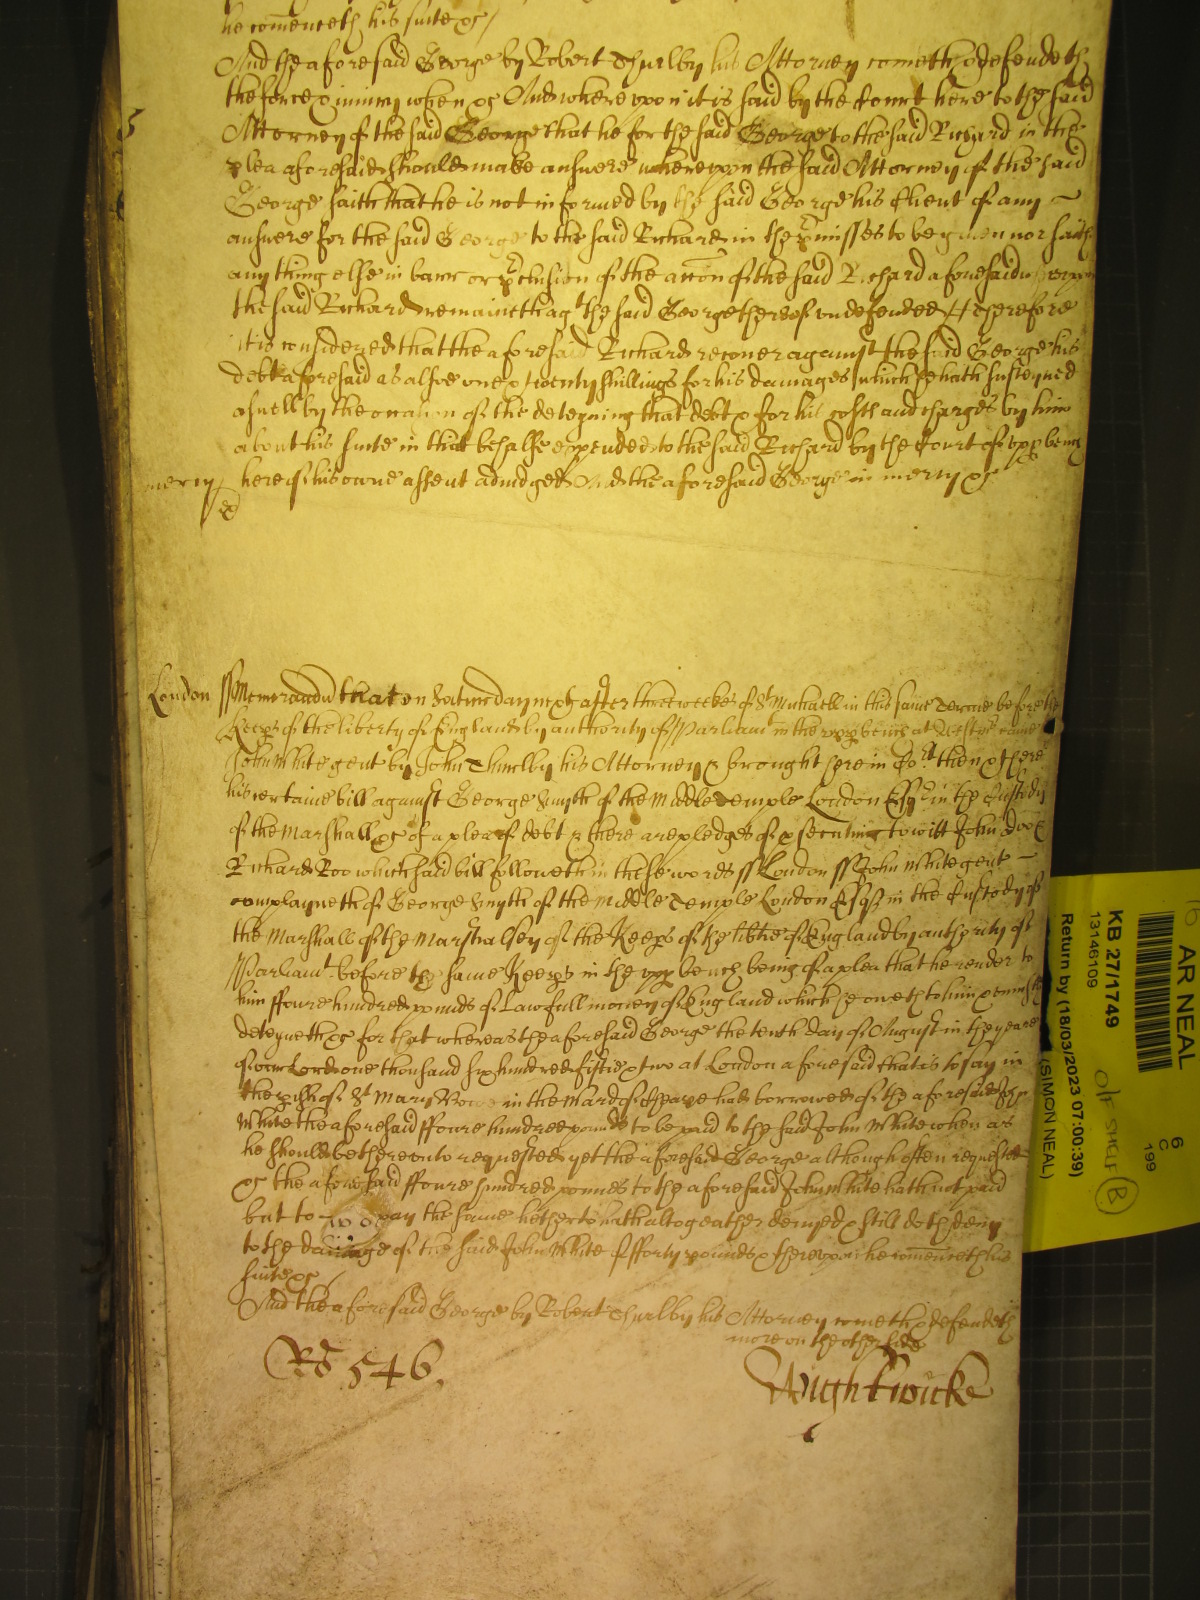 he comenceth his suite &c /
And the aforesaid George by Robert Thurlby his Attorney cometh & defendeth
the force & iniury when &c And whereupon it is said by the Court here to the said
Attorney of the said George that he for the said George to the said Richard in the
plea aforesaid should make answere whereupon the said Attorney of the said
George saith that he is not informed by the said George his Client of any
answere for the said George to the said Richard in the pmisses to be given nor saith
any thing else in barr or pclusion of the accon of the said Richard aforesaid
the said Richard remaineth agt the said George thereof undefended Therefore
it is considered that the aforesaid Richard recover against the said George his
debt aforesaid as alsoe one & twenty shillings for his damages which he hath susteyned
aswell by the occasion of the deteyning that debt & for his costs and charges by him
about his suite in that behalfe expended to the said Richard by the Court of upp bench
mercy here of his owne assent adiudged And the aforesaid George in mercy &c
London ss Memorandu that on Saturday next after three weekes of St Michaell in this same Terme before the
Keeps of the liberty of England by authority of Parliamt in the upp bench at Westmr came
John White gent by John Thurlby his Attorney & brought here in Cort then & there
his certaine bill against George Smyth of the Middle Temple London Esqr in the Custody
of the Marshall &c of a plea of debt & there are pledges of psecuting to witt John Doo &
Richard Roo which said bill followeth in these words ss London ss John White gent
complayneth of George Smyth of the Middle Temple London Esqr in the Custody of
the Marshall of the Marshalsey of the Keeps of the libtie of England by authority of
Parliamt before the same Keeps in the upp bench being of a plea that he render to
him ffoure hundred pounds of Lawfull money of England which he oweth to him &
deteyneth &c for that whereas the aforesaid George the tenth day of August in the yeare
of our Lord one thousand six hundred fiftie & two at London aforesaid that is to say in
the pish of St Mary Bowe in the Ward of Cheape had borrowed of the aforesaid John
White the aforesaid ffoure hundred pounds to be paid to the said John White when as
he should be thereunto requested yet the aforesaid George although often requested
&c the aforesaid ffoure hundred pounds to the aforesaid John White hath not paid
but to pay the same hetherto hath altogeather denyed & still doth deny
to the damage of the said John White of fforty pounds & thereupon he comenceth his
suite &c /
And the aforesaid George by Robert Thurlby his Attorney cometh & defendeth
more on the other side
Ro 546. Wightwicke
AR NEAL
KB 27/1749
13146109
Return by (18/03/2023 07:00:39)
(SIMON NEAL)
6
C
199
B